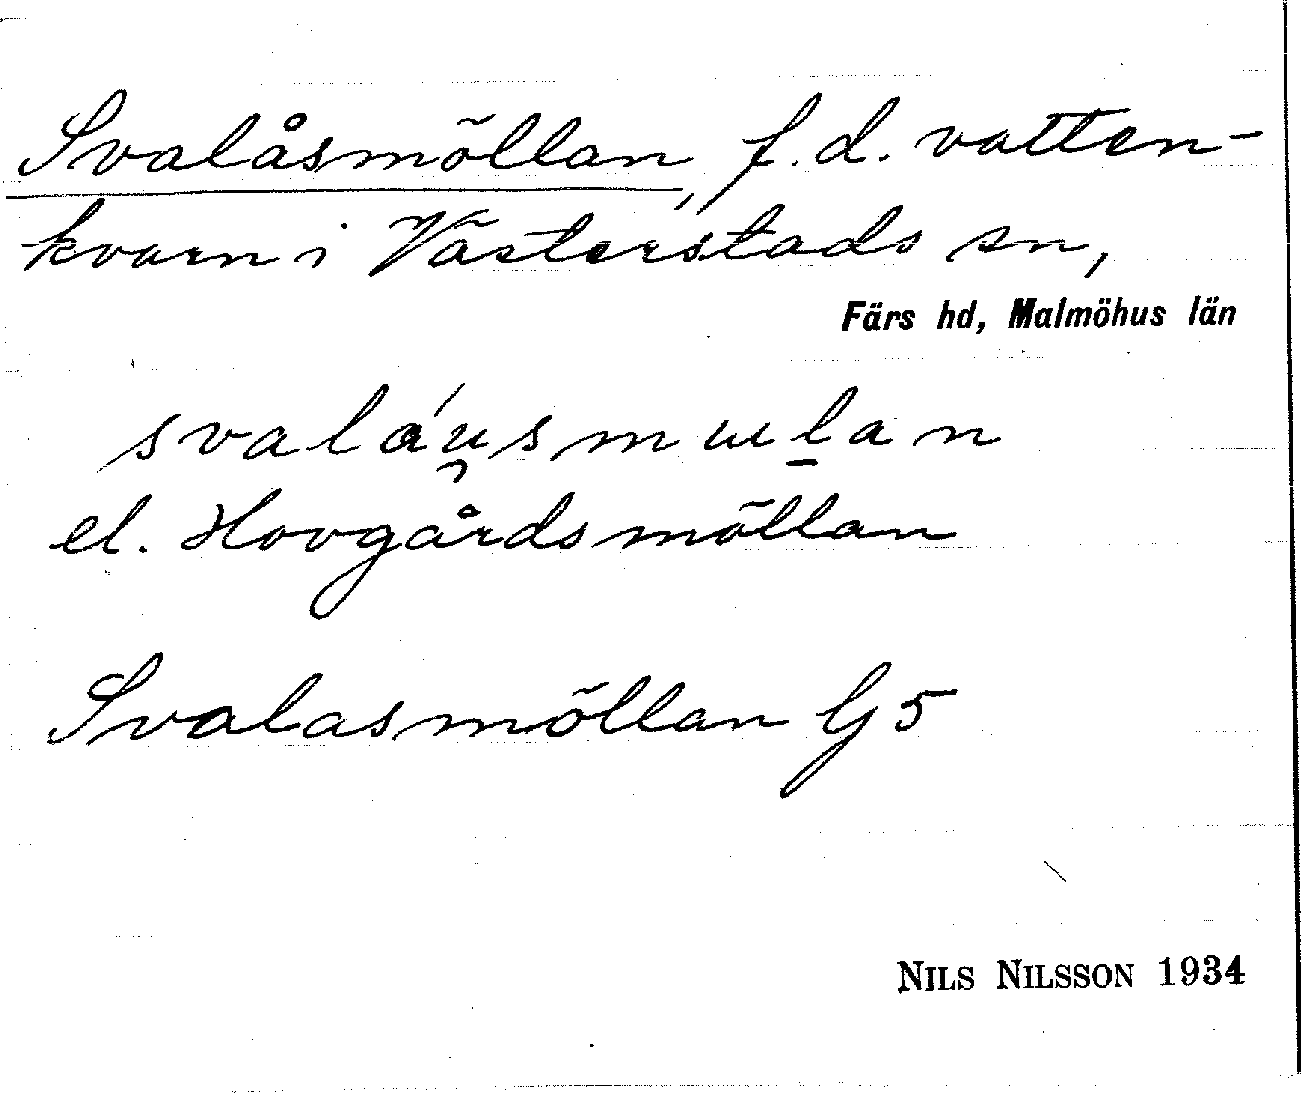 Svalåsmöllan, f.d. vatten-
kvarn i Västerstads sn,
Färs hd, Malmöhus län
el. Hovgårdsmöllan
Svalasmöllan G5
NILS NILSSON 1934